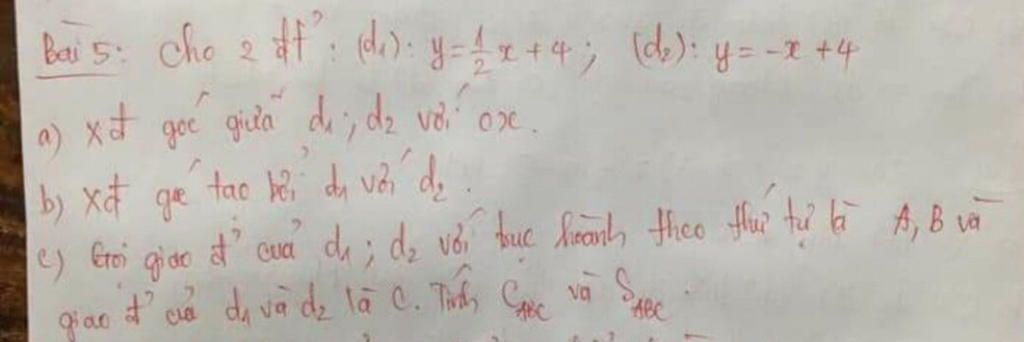 Bài 5: Cho 2 đt̉ : (d₁): y = 1/2 x + 4 ; (d₂): y = -x + 4
a) xđ góc giữa d₁ ; d₂ với ox.
b) xđ góc tạo bởi d₁ với d₂ .
c) Gọi giao đ̉ của d₁ ; d₂ với trục hoành theo thứ tự là A, B và
giao đ̉ của d₁ và d₂ là C. Tính C_ABC và S_ABC .